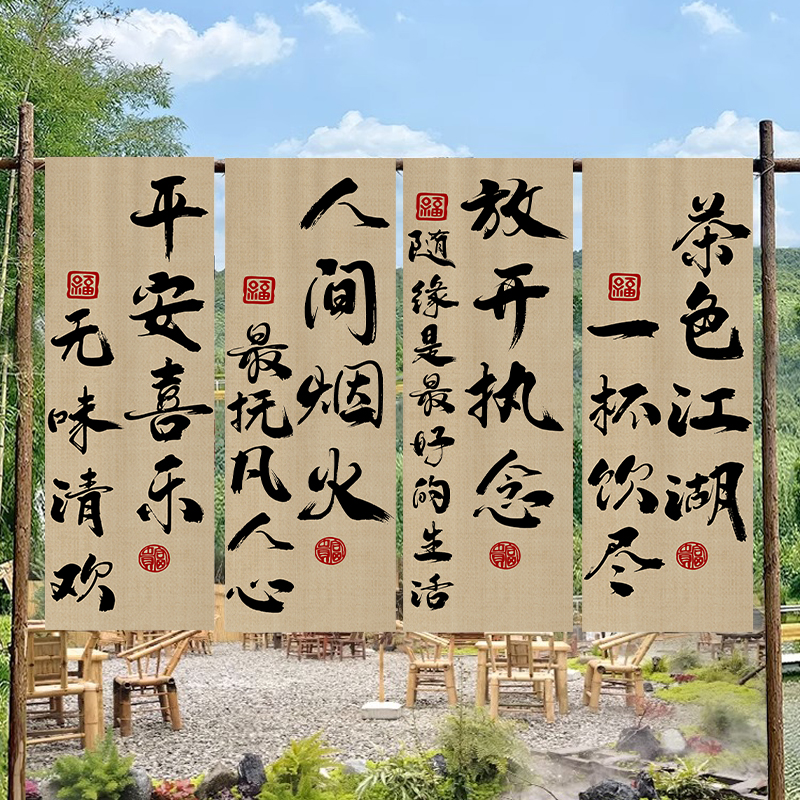 平安喜乐
福
无味清欢
人间烟火
福
最抚凡人心
放开执念
福
随缘是最好的生活
茶色江湖
福
一杯饮尽